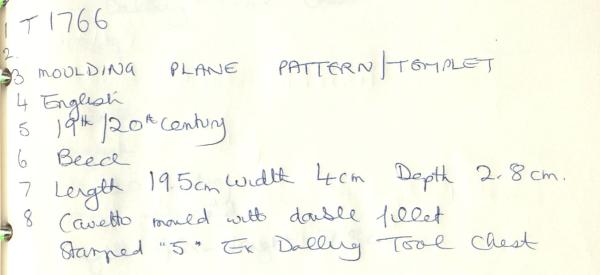 1 T 1766
2.
3 MOULDING PLANE PATTERN/TEMPLET
4 English
5 19th/20th Century
6 Beech
7 Length 19.5cm Width 4cm Depth 2.8cm.
8 Cavetto mould with double fillet
Stamped "5" Ex Dalling Tool Chest